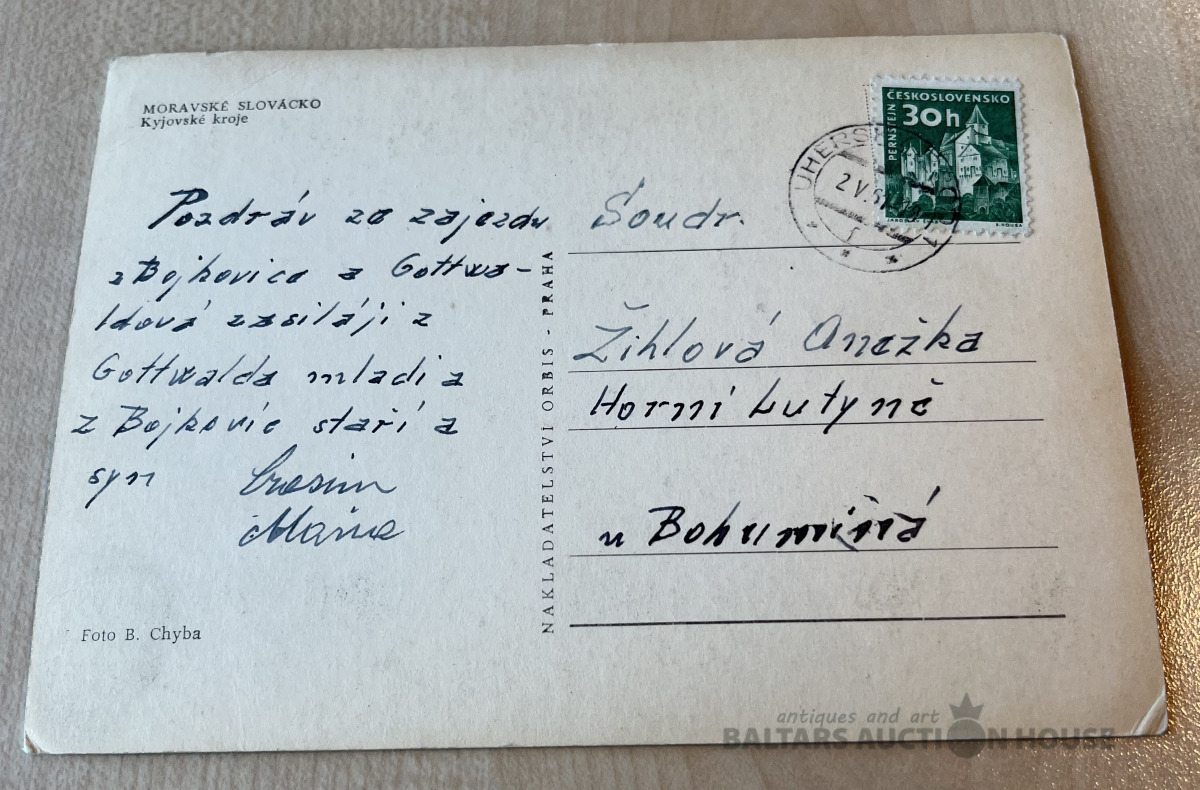 MORAVSKÉ SLOVÁCKO
Kyjovské kroje
Pozdráv ze zajezdu
z Bojkovica a Gottwa-
ldová zasiláji z
Gottwalda mladi a
z Bojkovic staří a
syn
Foto B. Chyba
NAKLADATELSTVÍ ORBIS - PRAHA
ČESKOSLOVENSKO
30h
PERNŠTEJN
UHERSK
2 V.61
Soudr.
Žihlová Anežka
Horní Lutyně
u Bohuminá
antiques and art
BALTARS AUCTION HOUSE